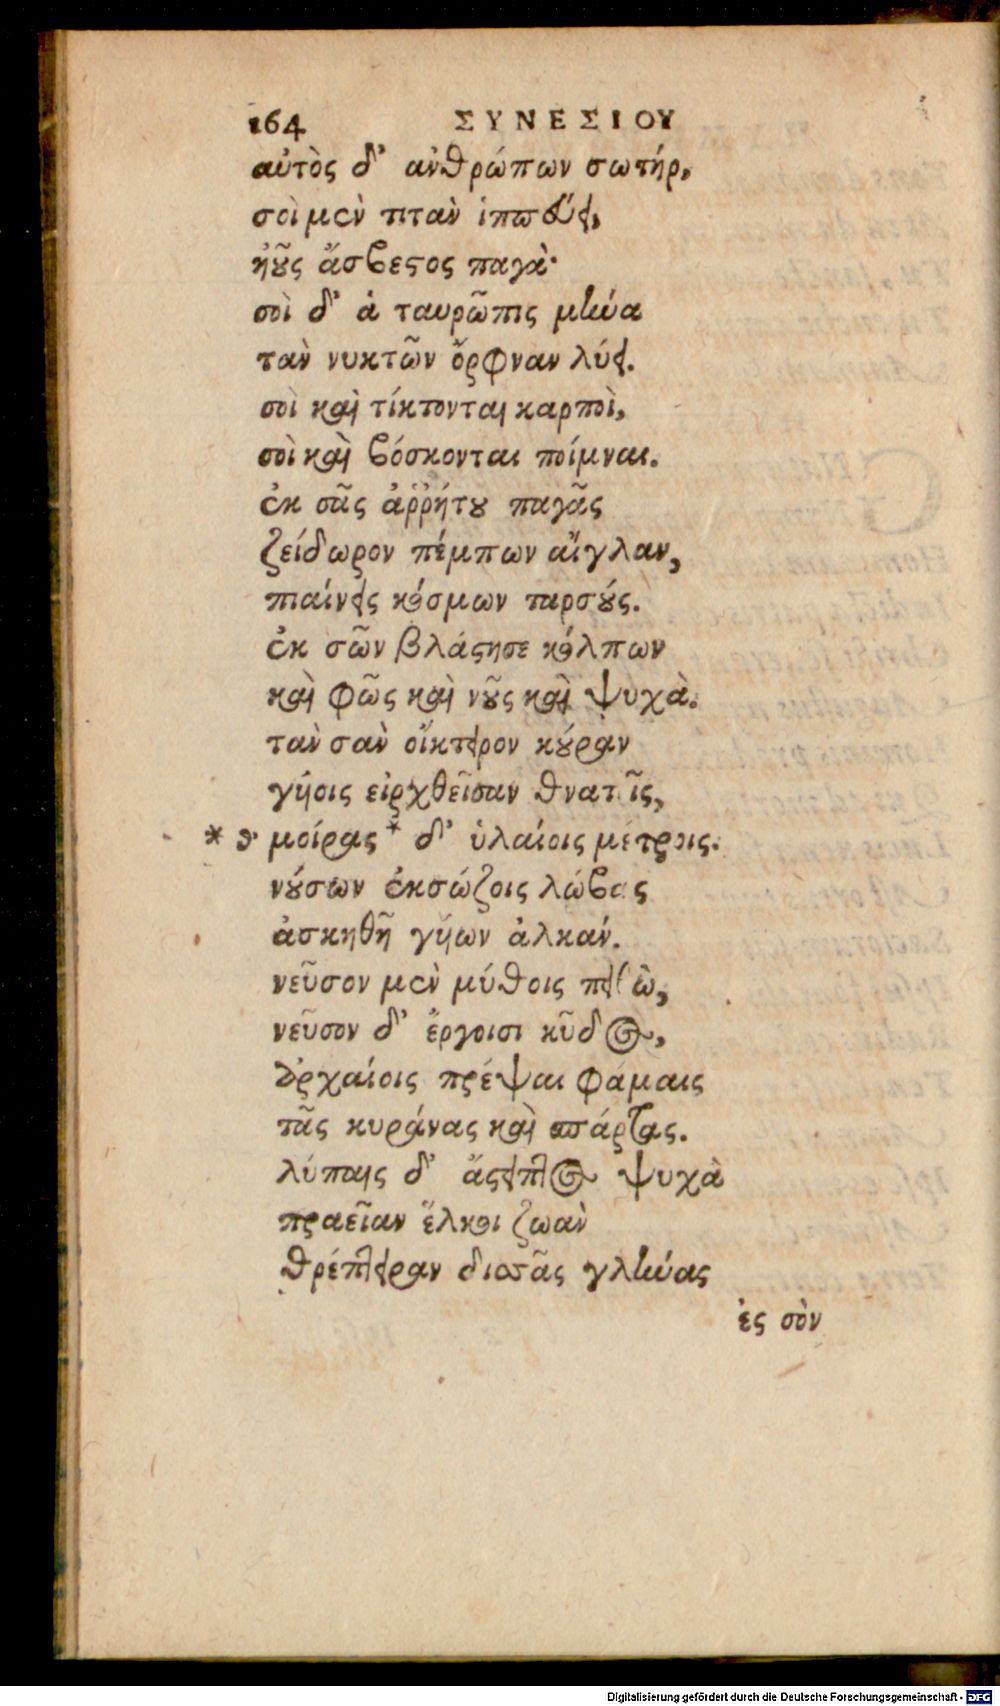 164 ΣΥΝΕΣΙΟΥ
αὐτὸς δ' ἀνθρώπων σωτήρ,
σοὶ μὲν τιτὰν ἱππεύει,
ἠοῦς ἄσβεστος παγὰ·
σοὶ δ' ἁ ταυρῶπις μήνα
τὰν νυκτῶν ὄρφναν λύει.
σοὶ καὶ τίκτονται καρποὶ,
σοὶ καὶ βόσκονται ποίμναι.
ἐκ σᾶς ἀῤῥήτου παγᾶς
ζείδωρον πέμπων αἴγλαν,
πιαίνεις κόσμων ταρσούς.
ἐκ σῶν βλάστησε κόλπων
καὶ φῶς καὶ νοῦς καὶ ψυχὰ.
τὰν σὰν οἴκτειρον κούραν
γύοις εἰρχθεῖσαν θνατοῖς,
* θ· μοίρας * δ' ὑλαίοις μέτροις.
νούσων ἐκσώζοις λώβας
ἀσκηθῆ γύων ἀλκάν.
νεῦσον μὲν μύθοις πειθὼ,
νεῦσον δ' ἔργοισι κῦδος,
ἀρχαίοις πρέψαι φάμαις
τᾶς κυράνας καὶ σπάρτας.
λύπαις δ' ἄστειπτος ψυχὰ
πραεῖαν ἕλκοι ζωὰν
θρέπτειραν δισσᾶς γλήνας
ἐς σὸν
Digitalisierung gefördert durch die Deutsche Forschungsgemeinschaft - DFG